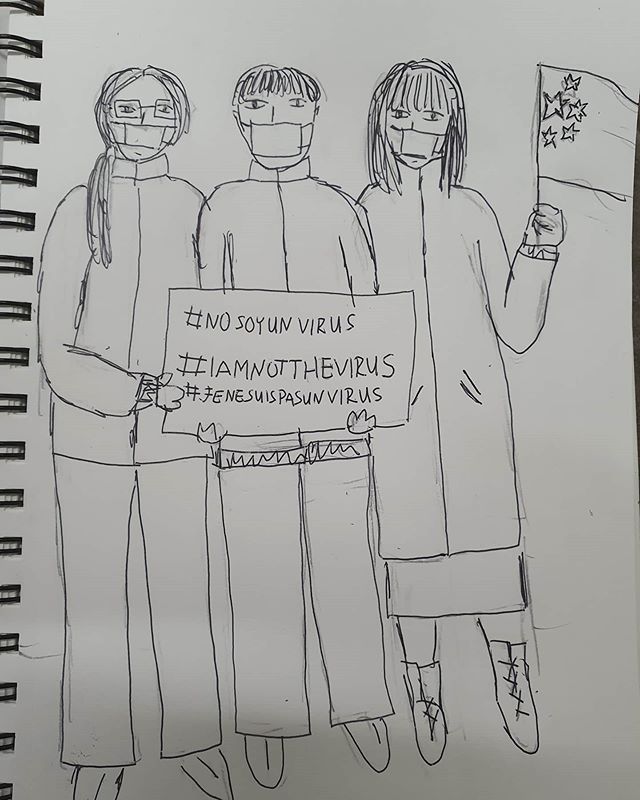 #NOSOYUN VIRUS
#IAMNOTTHEVIRUS
#JENESUISPASUNVIRUS